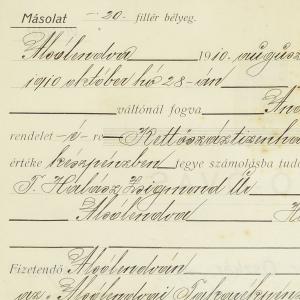 Másolat -20- fillér bélyeg.
Alsólendva 1910. augusz
1910 október hó 28-án
váltónál fogva
rendelet -é- re Kettőszáztizenha
értéke készpénzben jegye számolásba tud
T. Halász Zsigmond Úr
Alsólendva
Fizetendő Alsólendván
az Alsólendvai Takarékpén